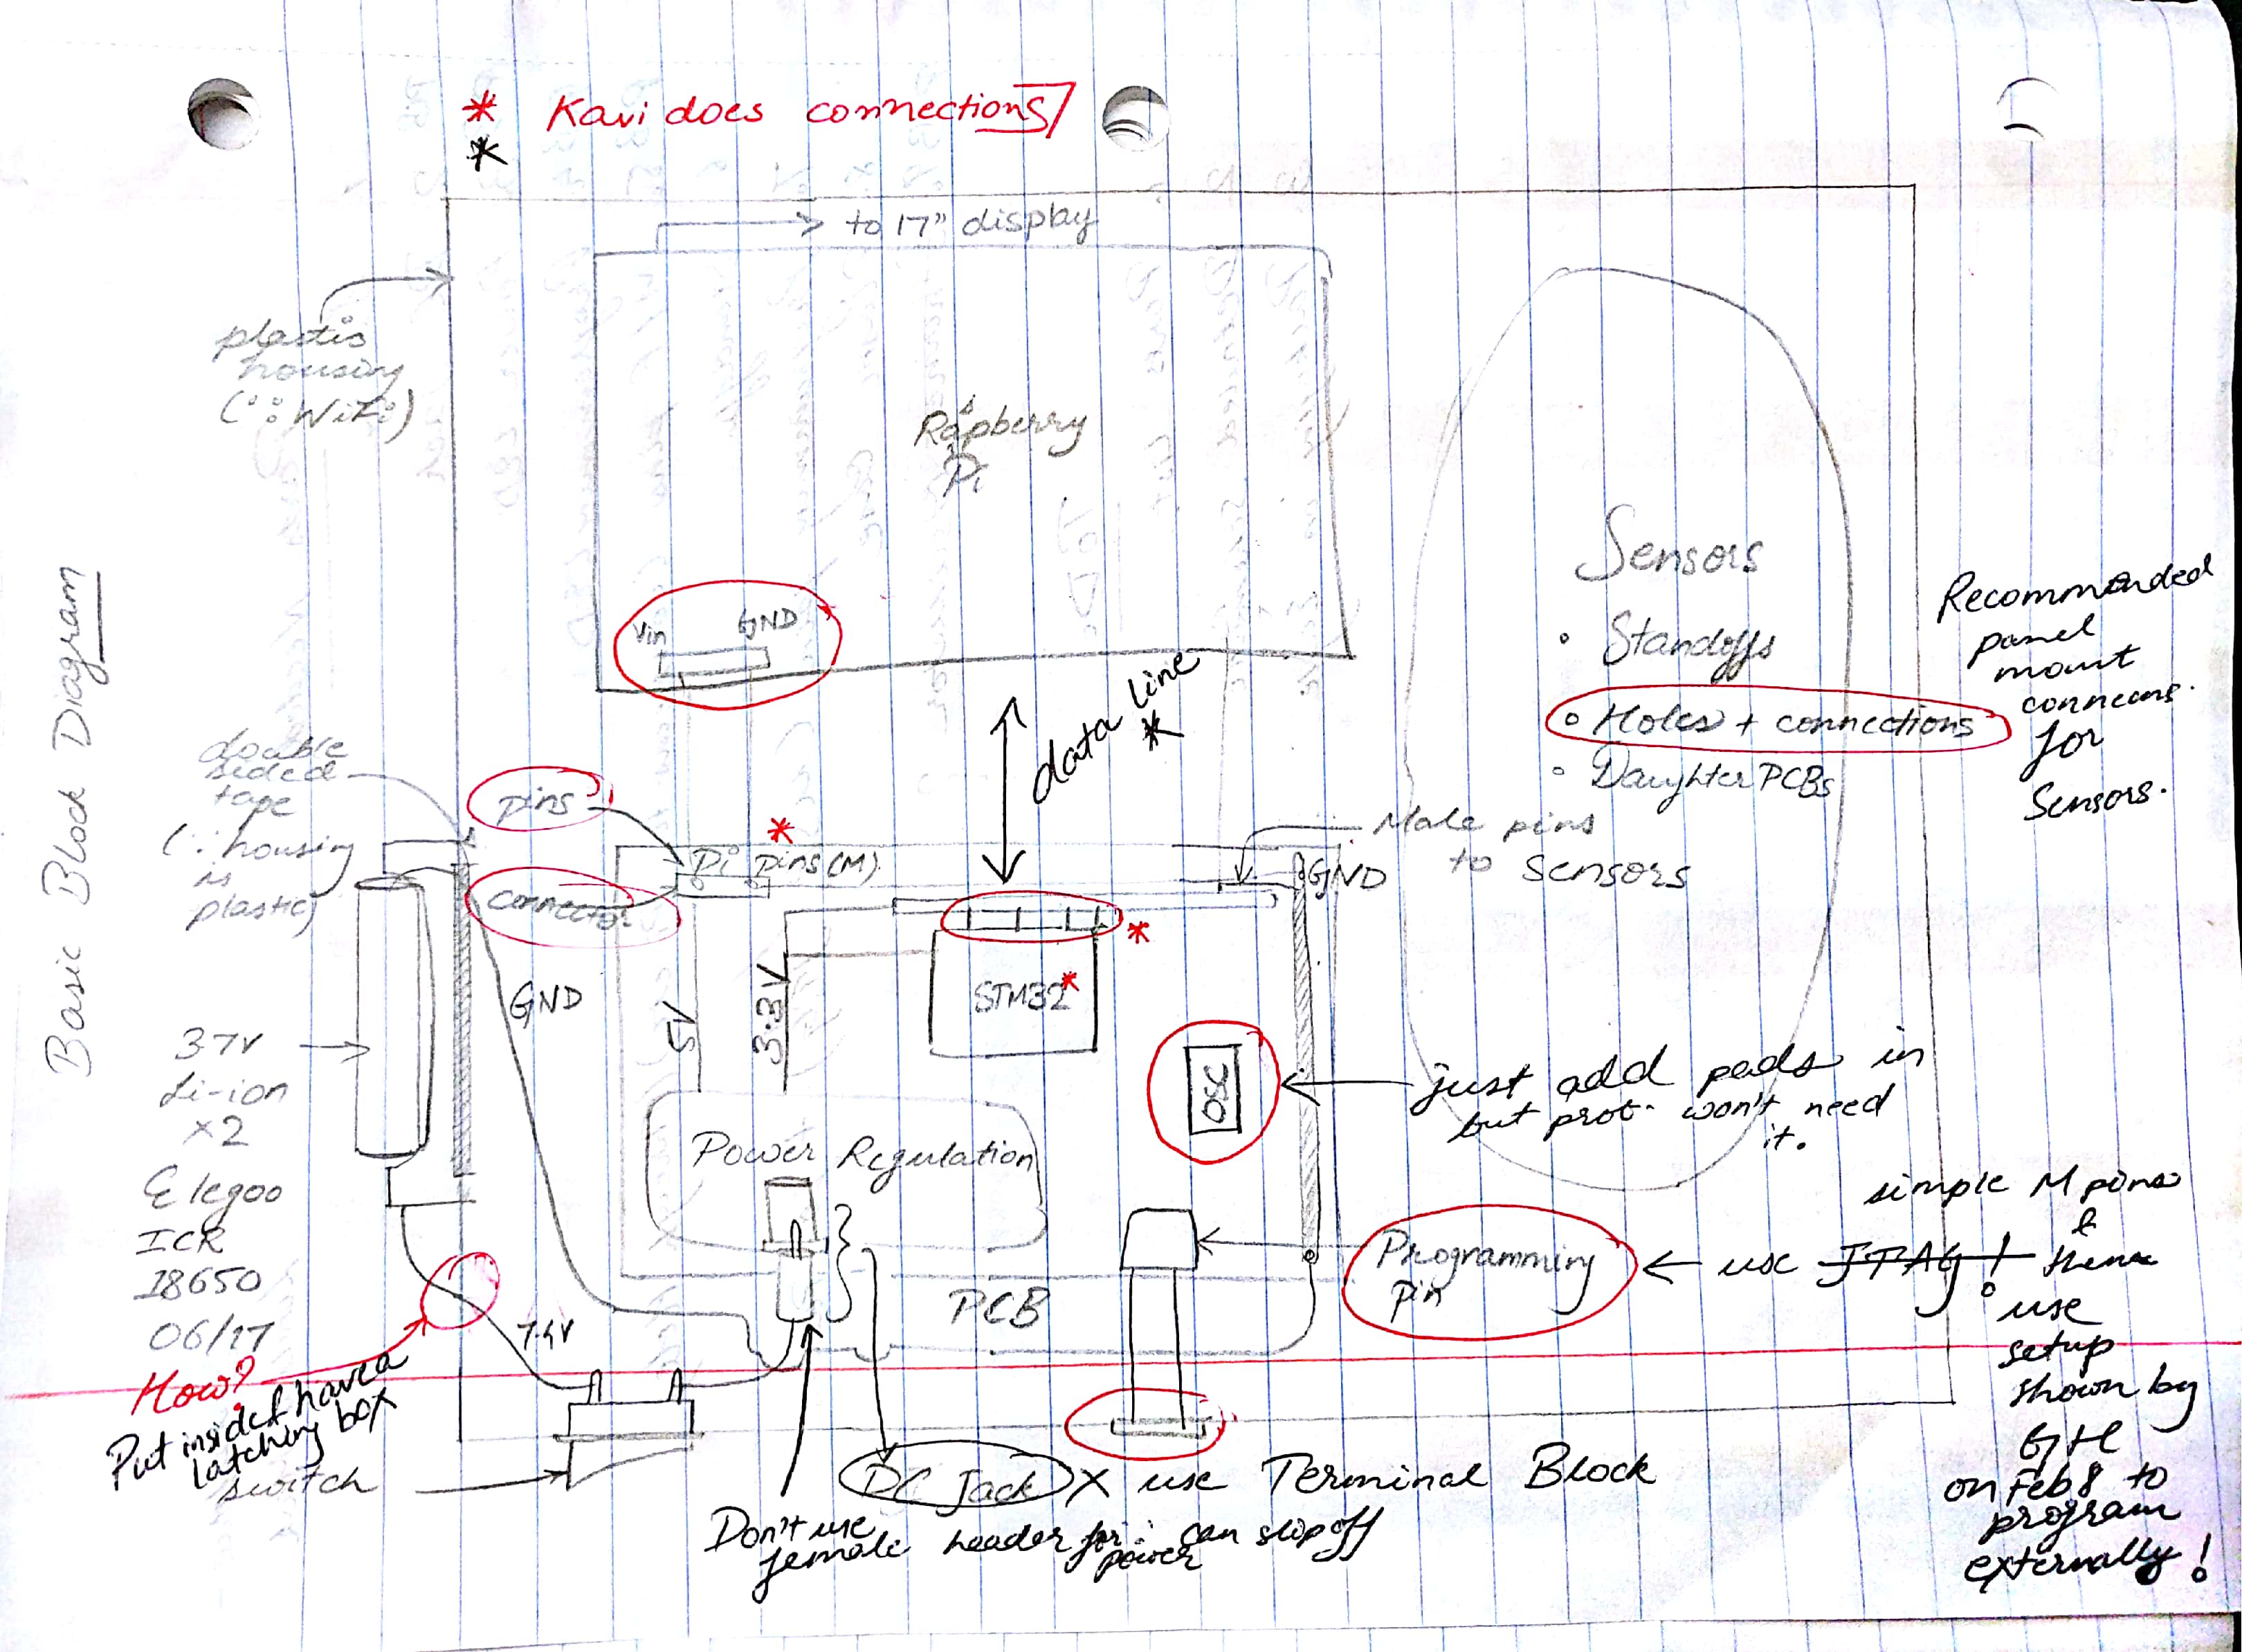 * Kavi does connections
*
to 17" display
plastic
housing
(∵ WiFi)
Raspberry
Pi
Vin GND
Basic Block Diagram
Sensors
° Standoffs
° Holes + connections
° Daughter PCBs
Recommended
panel
mount
for
Sensors.
data line
*
double
sided
tape
(∵ housing
is
plastic)
pins
connector
*
Pi pins (M)
Male pins
to sensors
GND
*
GND
5V
3.3V
STM32*
3.7V
Li-ion
x2
Elegoo
ICR
18650
06/17
OSC
just add pads in
but prob. won't need
it.
Power Regulation
PCB
7.4V
Programming
Pin
simple M pins
&
use JTAG!
use
setup
shown by
on Feb 8 to
program
externally!
How?
Put inside & have a
latching box
switch
DC Jack X use Terminal Block
Don't use
female header for power ∵ can slip off